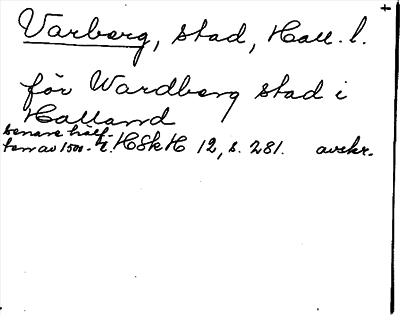 Varberg, stad, Hall. l.
för Wardberg stad i
Halland
senare hälf-
ten av 1500-t. HSkH 12, s. 281. avskr.